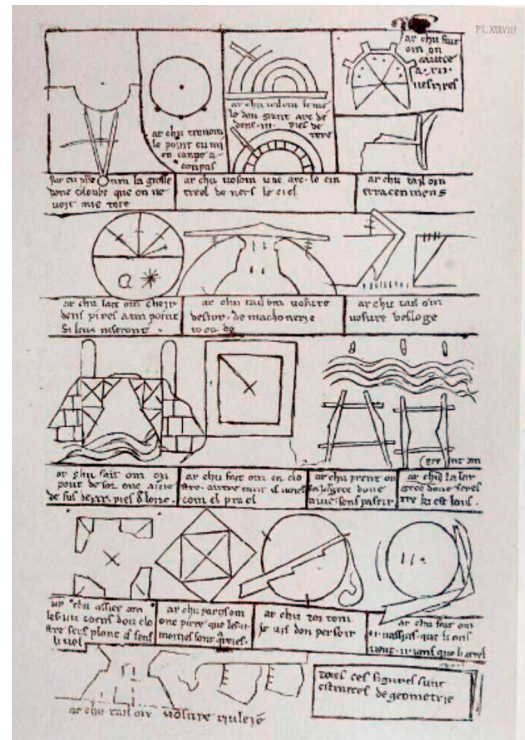 PL. XXXVIII
ar chu fait
om on
a. xii.
uesrires
ar chu trouom
le point en mi
on canpe a
conpas
don grant arc de
dens. iii. pies de
tere
par cu om la grosse
done colonbe que on ne
uoit mie tote
ar chu uosom une arc. le cin
treel de uers le ciel
ar chu tail om
erracemens
ar chu fait om cheir
deus pires a un point
si lons ne seront
ar chu tail om uosure
destor. de machonerie
roonde
ar chu tail om
uosure besloge
ar chu fait om on
pont de sor one aiue
de fus de. xx. pies de lonc.
ar chu fait om on clo
stre. autre tant es uoies
com el prael
ar chu prent om
la largece done
aiue sens paseir.
ar chu prent om
la lar
gece done fenes
tre ki est lons.
ar chu assiet om
les iiii. coens don clo
stre sens plonc et sens
liuel
ar chu partis om
one pirre que les ii.
moities sont quireies.
ar chu tor tom
le uis don persoir
ar chu fait om
ii. uassias que li ons
tient. ii. tans que li atres
ar chu tail om uosure riuleie
totes ces figures sunt
estraites de geometrie